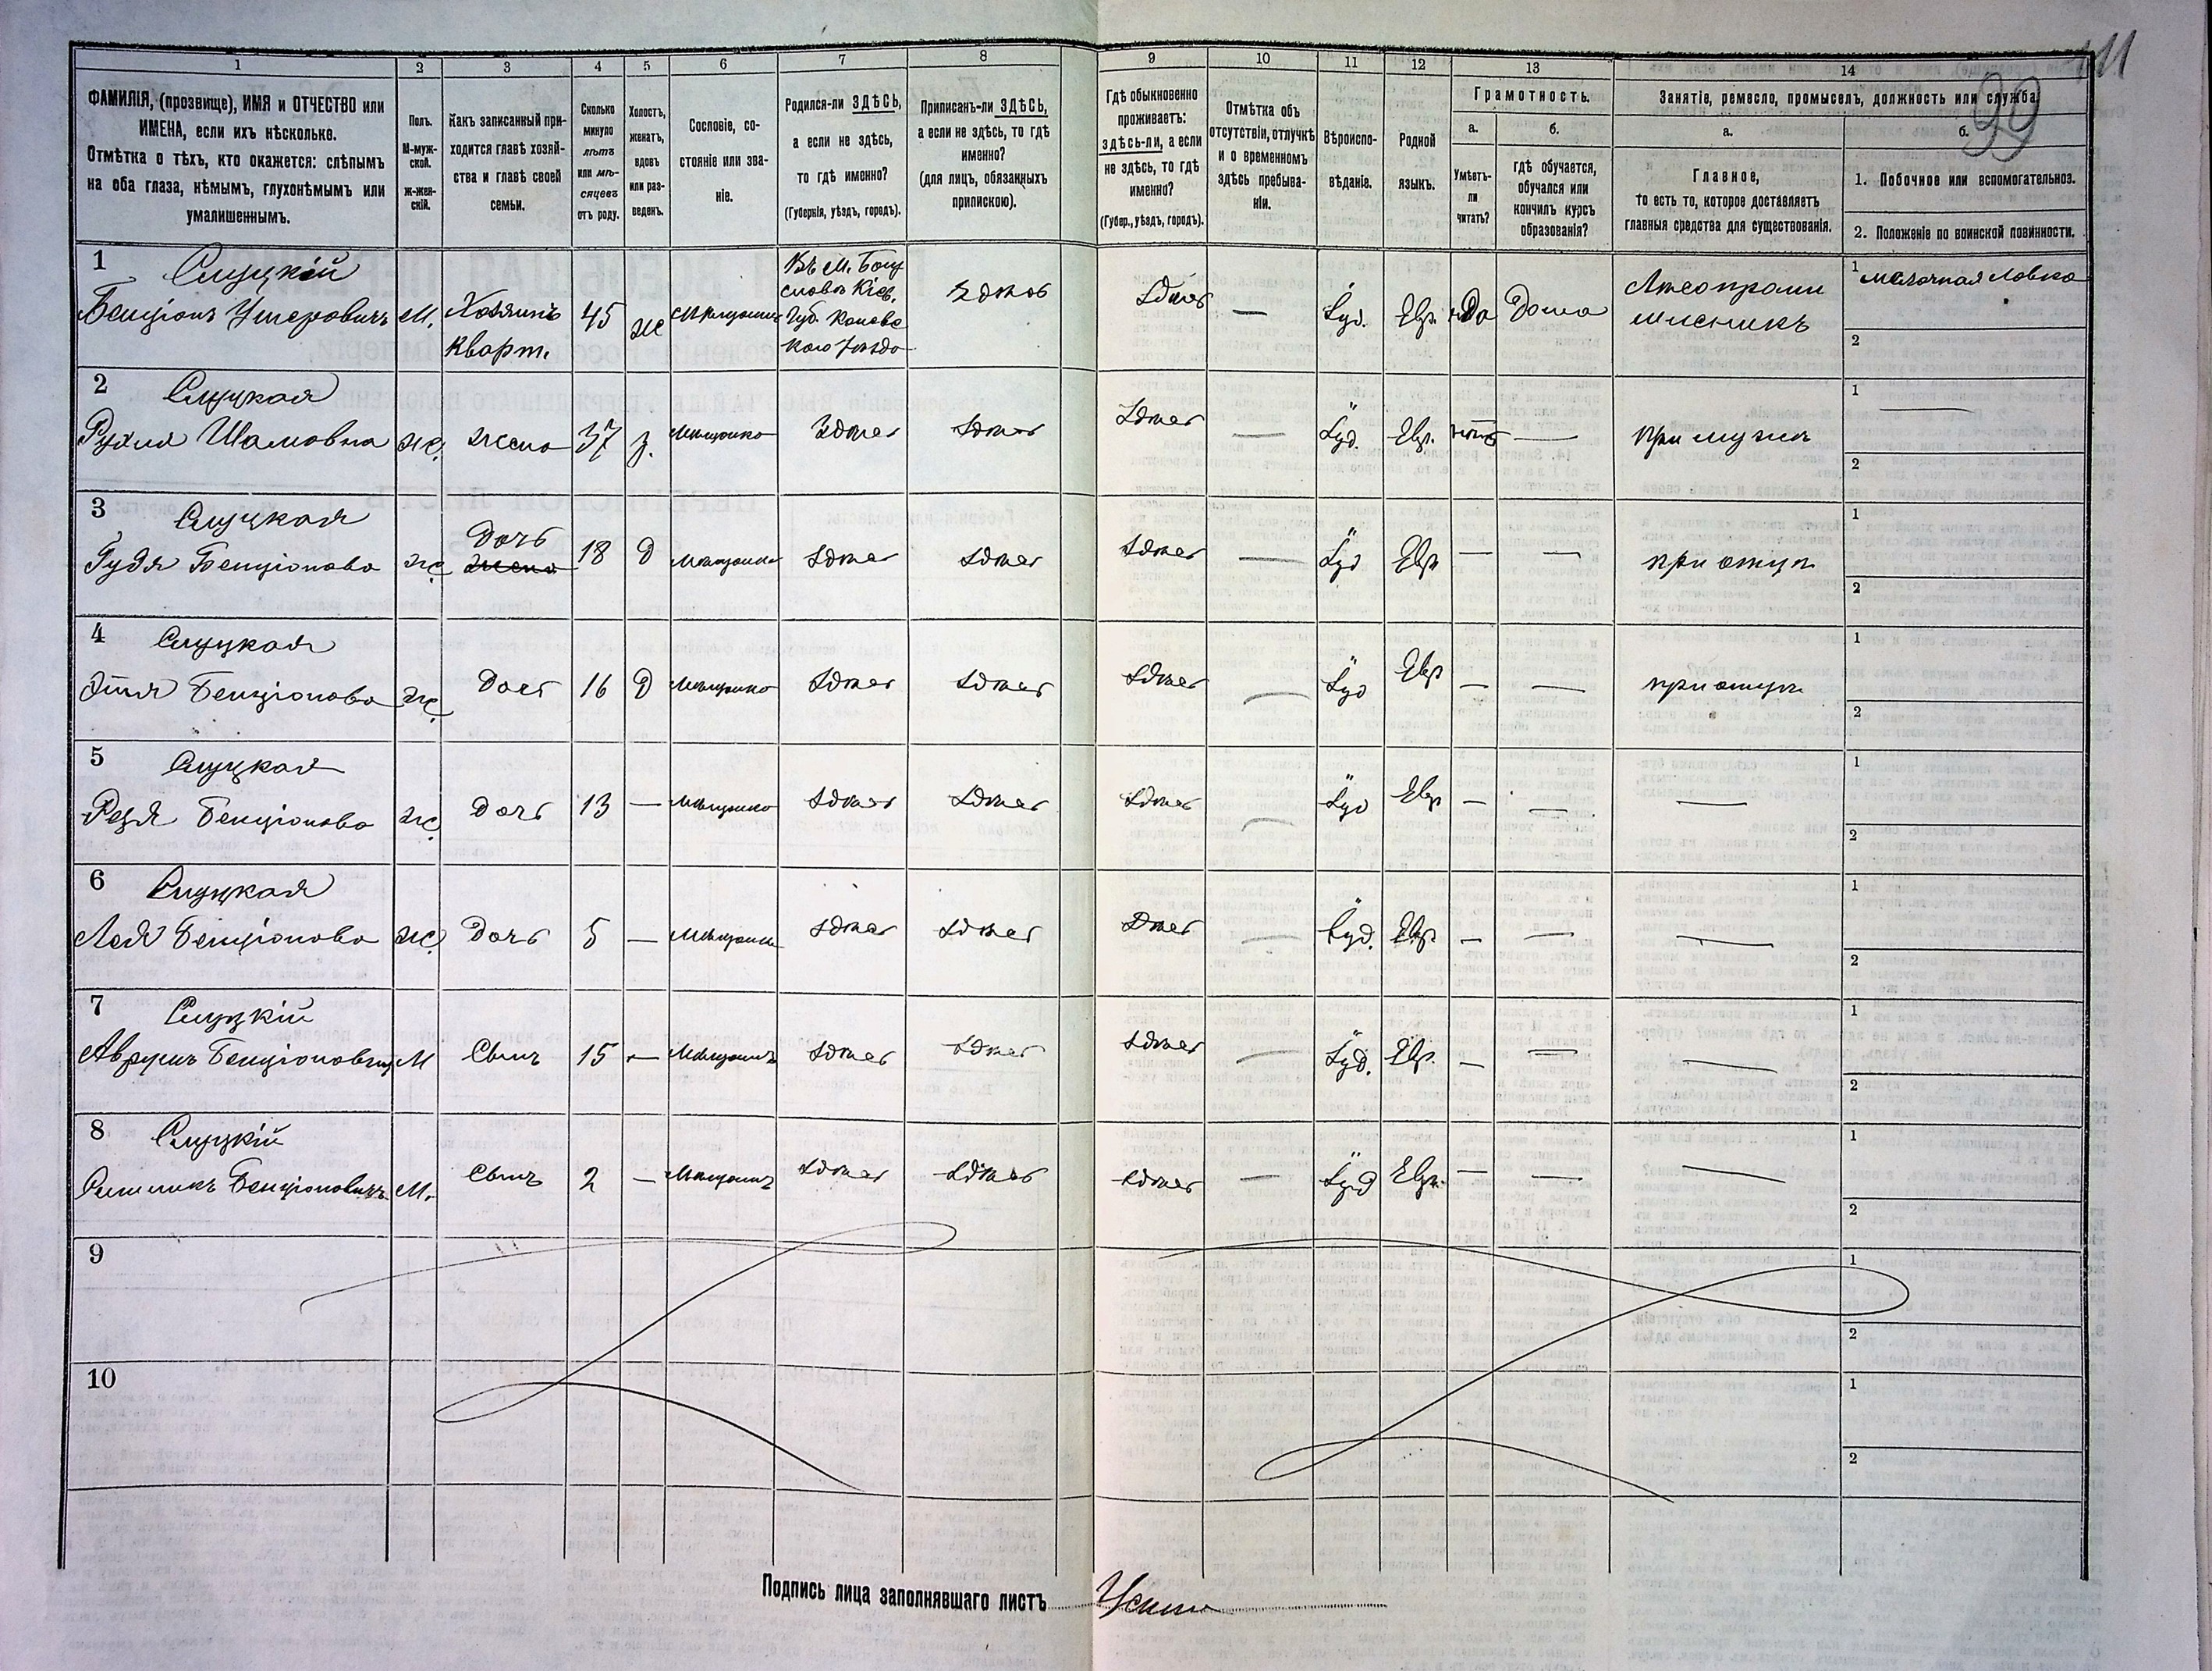 111
99
1
2
3
4
5
6
7
8
9
10
11
12
13
14
ФАМИЛІЯ, (прозвище), ИМЯ и ОТЧЕСТВО или
ИМЕНА, если ихъ нѣсколько.
Отмѣтка о тѣхъ, кто окажется: слѣпымъ
на оба глаза, нѣмымъ, глухонѣмымъ или
умалишеннымъ.
Полъ.
М-муж-
ской.
Ж-жен-
скій.
Какъ записанный при-
ходится главѣ хозяй-
ства и главѣ своей
семьи.
Сколько
минуло
лѣтъ
или мѣ-
сяцевъ
отъ роду.
Холостъ,
женатъ,
вдовъ
или раз-
веденъ.
Сословіе, со-
стояніе или зва-
ніе.
Родился-ли ЗДѢСЬ,
а если не здѣсь,
то гдѣ именно?
(Губернія, уѣздъ, городъ).
Приписанъ-ли ЗДѢСЬ,
а если не здѣсь, то гдѣ
именно?
(для лицъ, обязанныхъ
припискою).
Гдѣ обыкновенно
проживаетъ:
здѣсь-ли, а если
не здѣсь, то гдѣ
именно?
(Губер., уѣздъ, городъ).
Отмѣтка объ
отсутствіи, отлучкѣ
и о временномъ
здѣсь пребыва-
ніи.
Вѣроиспо-
вѣданіе.
Родной
языкъ.
Грамотность.
а.
б.
Умѣетъ-
ли
читать?
гдѣ обучается,
обучался или
кончилъ курсъ
образованія?
Занятіе, ремесло, промыселъ, должность или служба
а.
б.
Главное,
то есть то, которое доставляетъ
главныя средства для существованія.
1. Побочное или вспомогательное.
2. Положеніе по воинской повинности.
1
Слуцкій
Бенціонъ Ушеровичъ
М.
Хозяинъ
кварт.
45
ж
Мѣщанинъ
Въ М. Богу
славѣ Кіев.
Губ. Каневс
каго Уѣзда
Здѣсь
Здѣсь
—
Іуд.
Евр.
Да
Дома
мелочная лавка
1
2
2
Слуцкая
Рухля Шамовна
ж.
жена
37
з.
Мѣщанка
Здѣсь
Здѣсь
Здѣсь
—
Іуд.
Евр.
нѣтъ
—
при мужѣ
1
—
2
3
Слуцкая
Гудя Бенціонова
ж
Дочь
жена
18
Д
Мѣщанка
Здѣсь
Здѣсь
Здѣсь
—
Іуд
Евр
—
—
при отцѣ
1
2
4
Слуцкая
Этя Бенціонова
ж
Дочь
16
Д
Мѣщанка
Здѣсь
Здѣсь
Здѣсь
—
Іуд
Евр
—
—
при отцѣ
1
2
5
Слуцкая
Бенціонова
ж
Дочь
13
—
Мѣщанка
Здѣсь
Здѣсь
Здѣсь
—
Іуд
Евр
—
—
—
1
2
6
Слуцкая
Лея Бенціонова
ж
Дочь
5
—
Мѣщанка
Здѣсь
Здѣсь
Здѣсь
—
Іуд.
Евр
—
—
—
1
2
7
Слуцкій
Аврумъ Бенціоновичъ
М
Сынъ
15
—
Мѣщанинъ
Здѣсь
Здѣсь
Здѣсь
—
Іуд.
Евр.
—
—
—
1
2
8
Слуцкій
Бенціоновичъ
М.
Сынъ
2
—
Мѣщанинъ
Здѣсь
Здѣсь
Здѣсь
—
Іуд
Евр.
—
—
—
1
2
9
1
2
10
1
2
Подпись лица заполнявшаго листъ